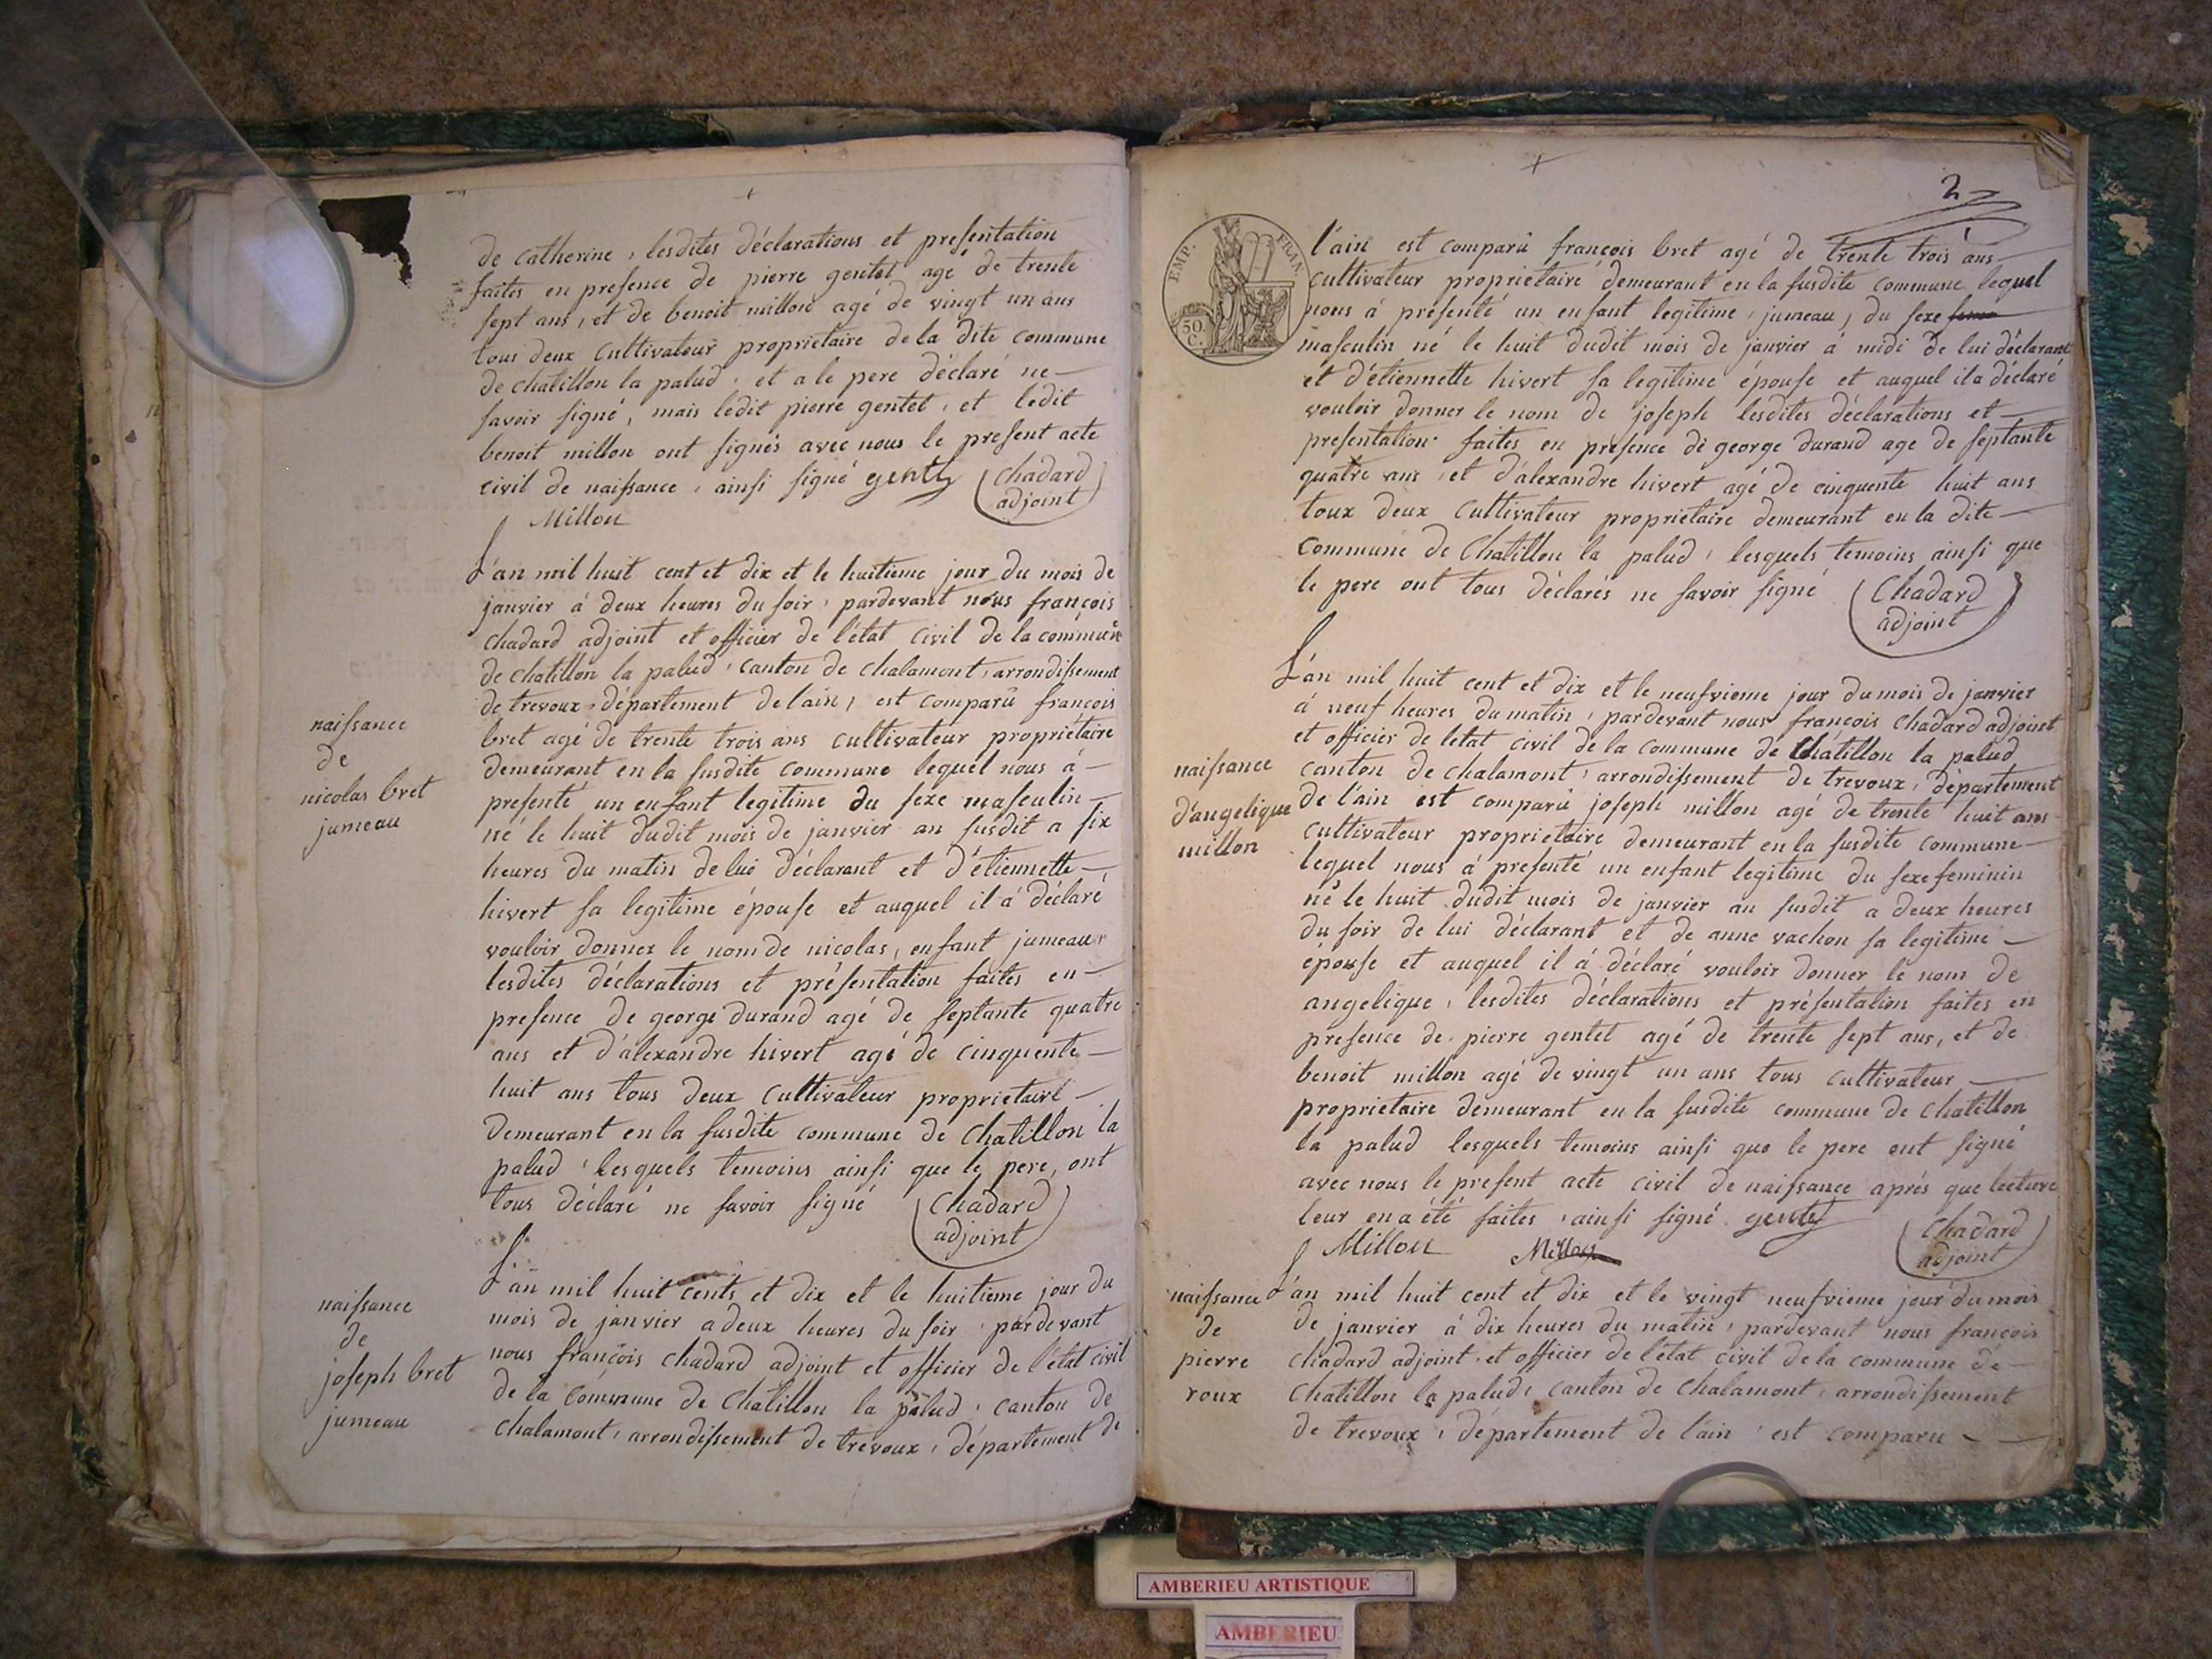 de catherine, lesdites déclarations et presentation
faites en presence de pierre gentet agé de trente
sept ans, et de benoit millon agé de vingt un ans
tous deux cultivateur proprietaire de la dite commune
de chatillon la palud, et a le pere déclaré ne
savoir signé, mais ledit pierre gentet, et ledit
benoit millon ont signés avec nous le present acte
civil de naissance, ainsi signé gentet Chadard
adjoint
Millon
L'an mil huit cent et dix et le huitieme jour du mois de
janvier à deux heures du soir, pardevant nous françois
chadard adjoint et officier de l'état civil de la commune
de chatillon la palud, canton de chalamont, arrondissement
de trevoux, département de lain, est comparû françois
naissance
de
nicolas bret
jumeau
bret agé de trente trois ans cultivateur propriétaire
demeurant en la susdite commune lequel nous à
presenté un enfant legitime du sexe masculin
né le huit dudit mois de janvier an susdit a six
heures du matin de lui déclarant et d'étiennette
hivert sa legitime épouse et auquel il à déclaré
vouloir donner le nom de nicolas, enfant jumeau
lesdites déclarations et présentation faites en
presence de george durand agé de septante quatre
ans et d'alexandre hivert agé de cinquente
huit ans tous deux cultivateur proprietaire
demeurant en la susdite commune de chatillon la
palud, lesquels temoins ainsi que le pere, ont
tous déclaré ne savoir signé Chadard
adjoint
L'an mil huit cents et dix et le huitieme jour du
mois de janvier a deux heures du soir, pardevant
nous françois chadard adjoint et officier de l'état civil
de la commune de Chatillon la palud, canton de
chalamont, arrondissement de trévoux, département de
naissance
de
joseph bret
jumeau
2
EMP. FRAN.
50 C.
l'ain est comparû françois bret agé de trente trois ans
cultivateur proprietaire demeurant en la susdite commune lequel
nous à présenté un enfant legitime, jumeau, du sexe
masculin né le huit dudit mois de janvier à midi de lui déclarant
et d'étiennette hivert sa legitime épouse et auquel il a déclaré
vouloir donner le nom de joseph lesdites déclarations et
presentation faites en presence de george durand age de septante
quatre ans, et d'alexandre hivert agé de cinquente huit ans
toux deux cultivateur proprietaire demeurant en la dite
commune de Chatillon la palud, lesquels temoins ainsi que
le pere ont tous déclarés ne savoir signé Chadard
adjoint
L'an mil huit cent et dix et le neufvieme jour du mois de janvier
à neuf heures du matin, pardevant nous françois chadard adjoint
et officier de letat civil de la commune de Chátillon la palud
naissance
d'angelique
millon
canton de chalamont, arrondissement de trevoux, département
de l'ain est comparû joseph millon agé de trente huit ans
cultivateur proprietaire demeurant en la susdite commune
lequel nous à presenté un enfant legitime du sexe feminin
né le huit dudit mois de janvier an susdit a deux heures
du soir de lui déclarant et de anne vachon sa legitime
épouse et auquel il à déclaré vouloir donner le nom de
angelique, lesdites déclarations et présentation faites en
presence de pierre gentet agé de trente sept ans, et de
benoit millon agé de vingt un ans tous cultivateur
proprietaire demeurant en la susdite commune de chatillon
la palud lesquels temoins ainsi que le pere ont signé
avec nous le present acte civil de naissance après que lecture
leur en a été faites, ainsi signé gentet Chadard
adjoint
Millon Millon
naissance
de
pierre
roux
L'an mil huit cent et dix et le vingt neufvieme jour du mois
de janvier à dix heures du matin, pardevant nous françois
chadard adjoint, et officier de l'état civil de la commune de
chatillon la palud, canton de chalamont, arrondissement
de trevoux, département de l'ain, est comparu
AMBERIEU ARTISTIQUE
AMBERIEU